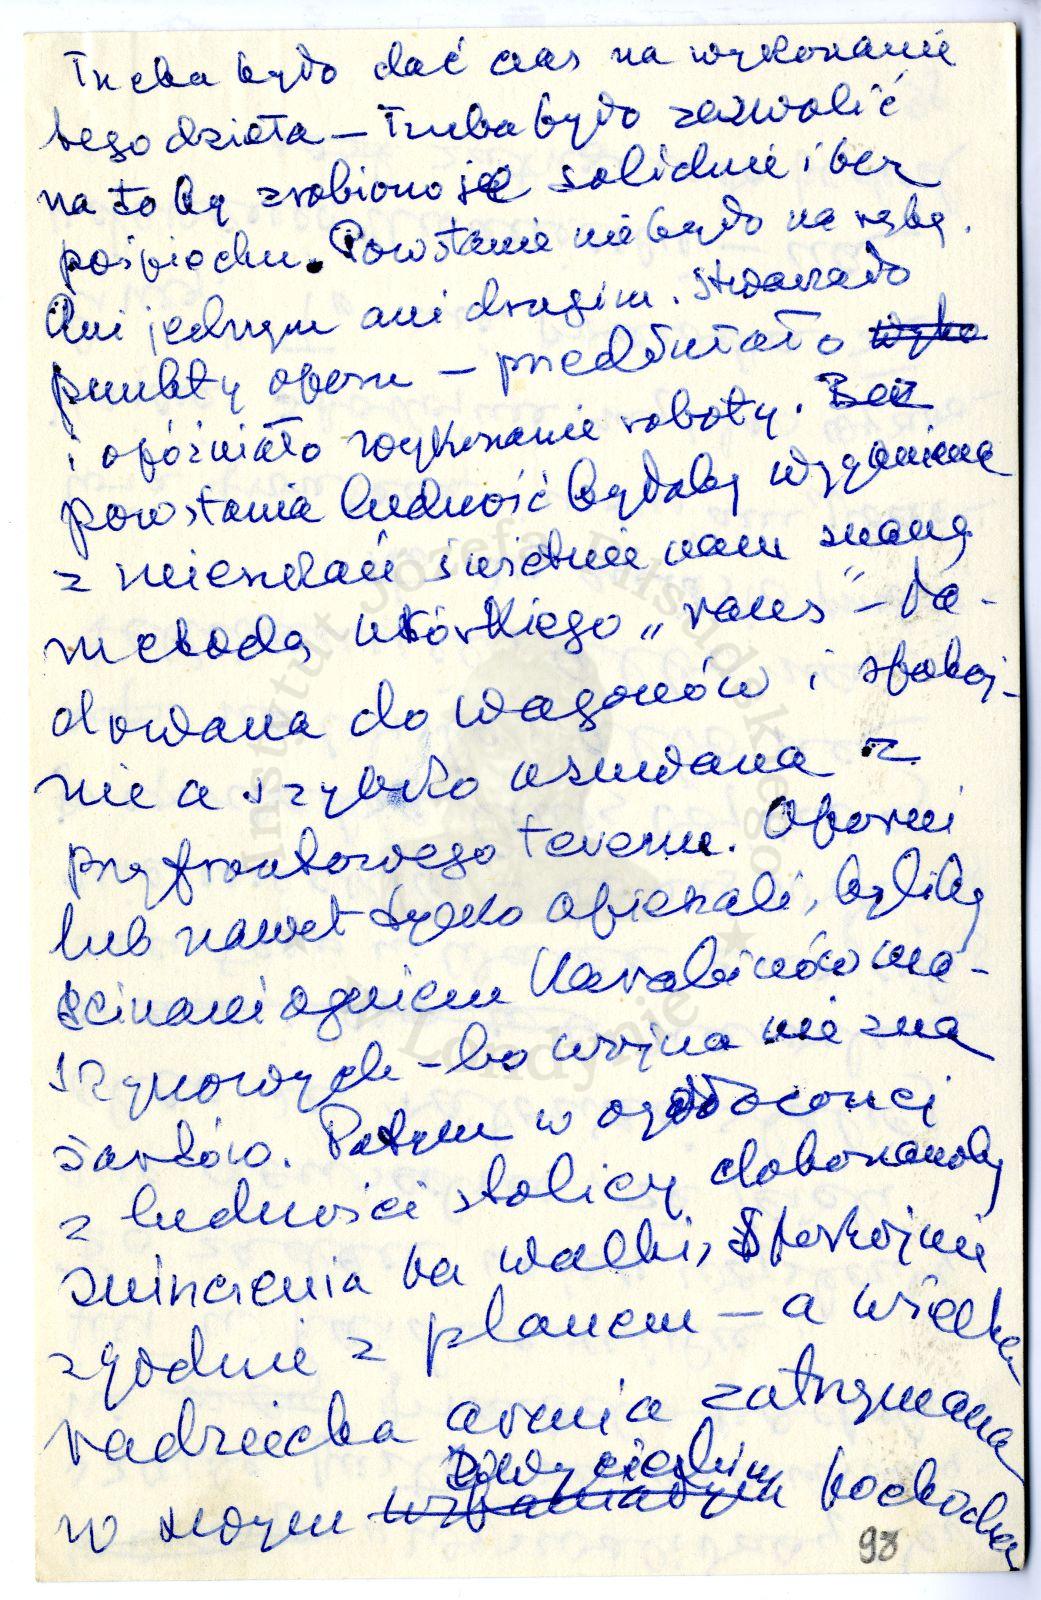 Trzeba było dać czas na wykonanie
tego dzieła – trzeba było zezwolić
na to by zrobiono je solidnie i bez
pośpiechu. Powstanie nie było na rękę
Ani jednym ani drugim. Stwarzało
punkty oporu – przedłużało wyko
i opóźniało wykonanie roboty. Bez
powstania ludność byłaby wygnana
z mieszkań świetnie nam znaną
metodą wtórkiego „raus" – ła-
dowana do wagonów i spokoj-
nie a szybko usuwana z
przyfrontowego terenu. Oporni
lub nawet tylko opieszali, byliby
ścinani ogniem karabinów ma-
szynowych – bo wojna nie zna
żartów. Potym w ogołoconej
z ludności stolicy dokonanoby
zniszczenia bez walki, Spokojnie
zgodnie z planem – a wielka
radziecka armia zatrzymana
zwycięskim
w swym wspaniałym pochodzie
98
Instytut Józefa Piłsudskiego
w Londynie